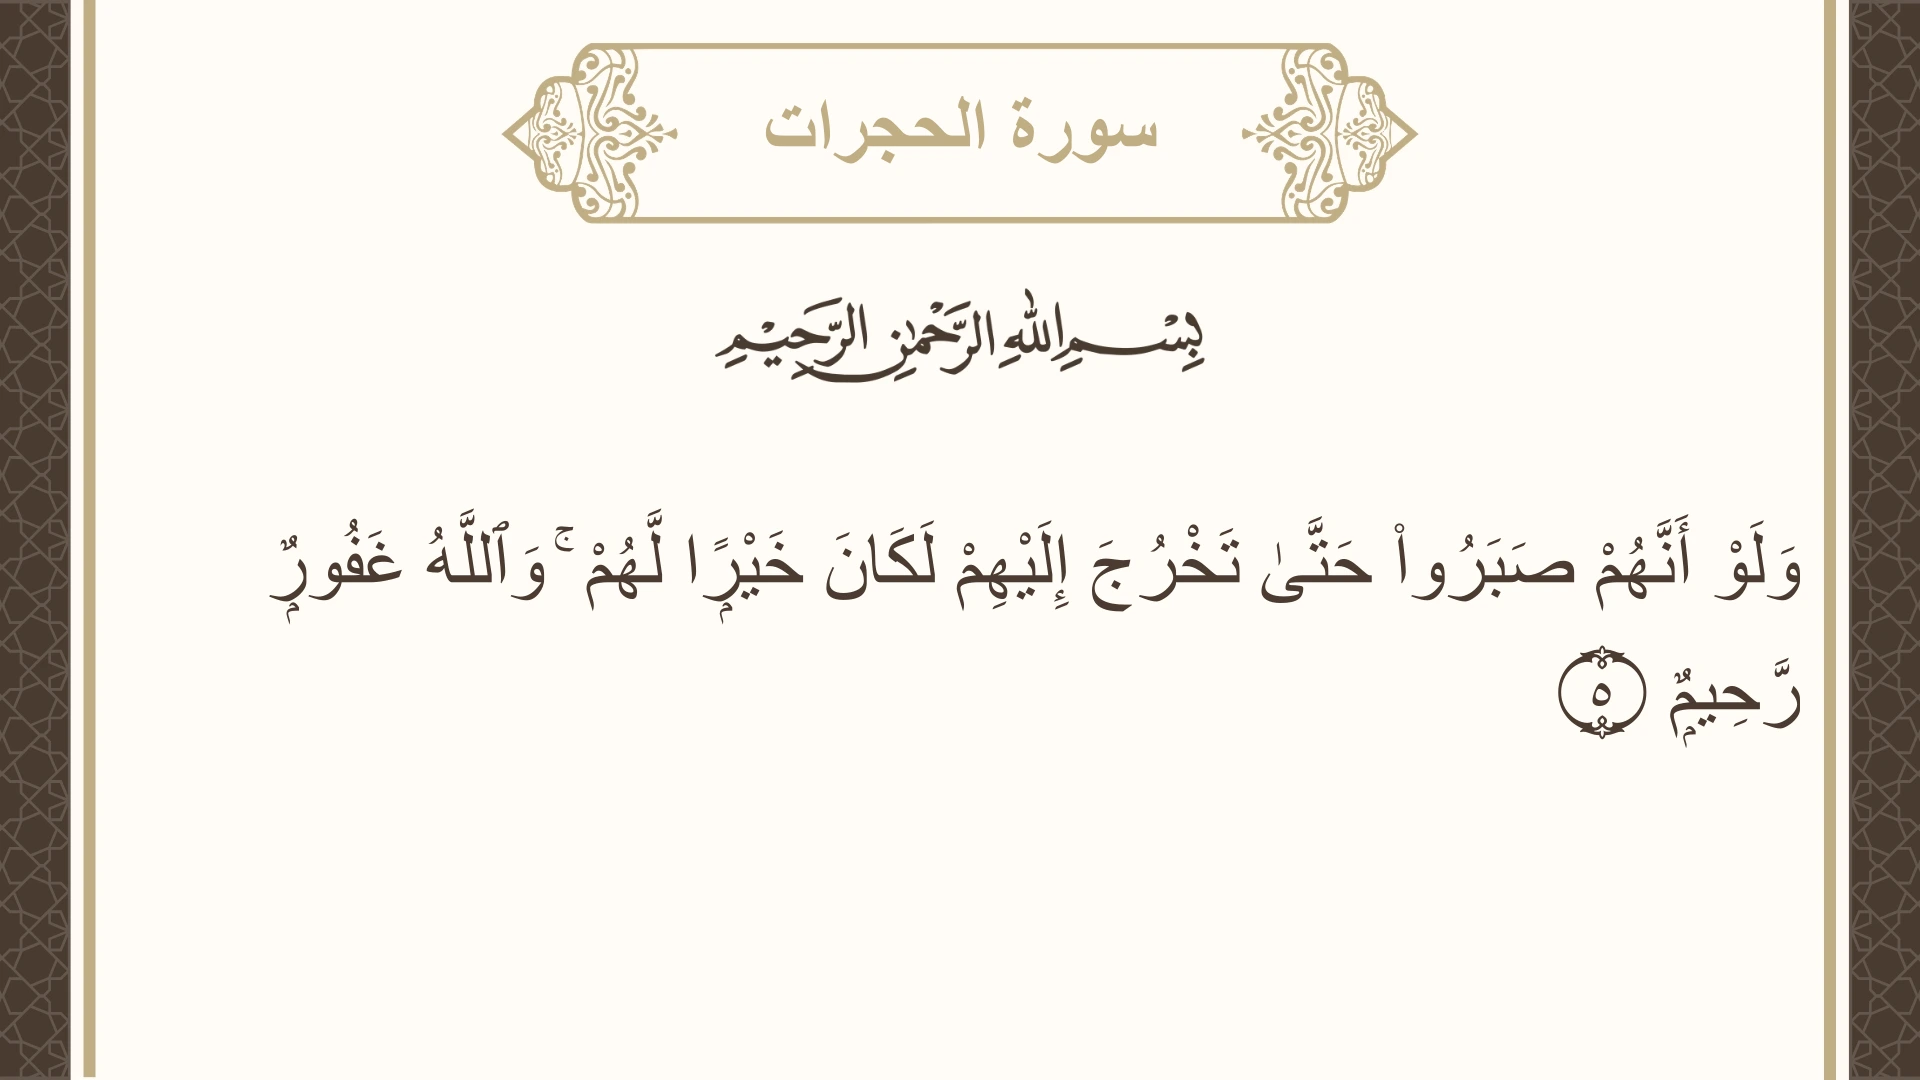 سورة الحجرات
بِسْمِ اللهِ الرَّحْمٰنِ الرَّحِيْمِ
وَلَوْ أَنَّهُمْ صَبَرُوا۟ حَتَّىٰ تَخْرُجَ إِلَيْهِمْ لَكَانَ خَيْرًۭا لَّهُمْ ۚ وَٱللَّهُ غَفُورٌۭ
رَّحِيمٌۭ ٥